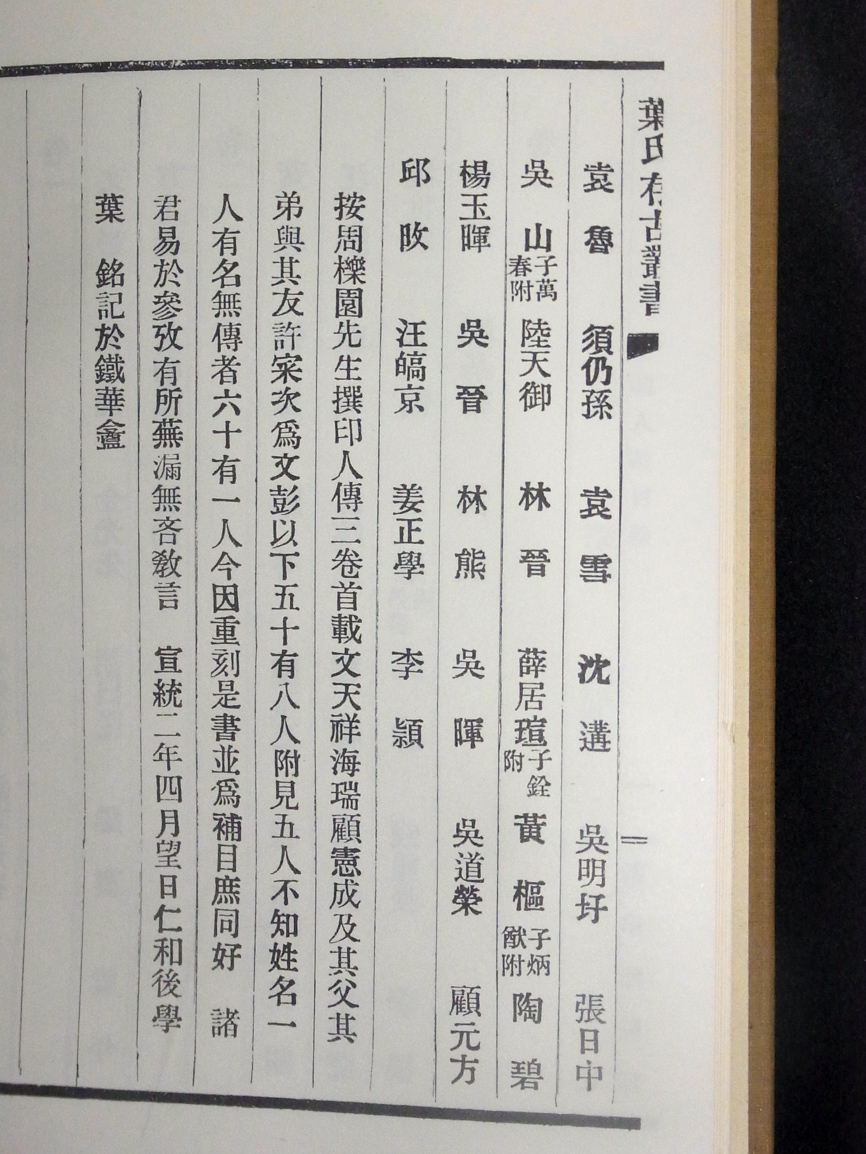 葉氏存古叢書
二
袁魯　須仍孫　袁雪　沈遘　吳明圩　張日中
吳山子萬春附　陸天御　林晉　薛居瑄子銓附　黃樞子炳猷附　陶碧
楊玉暉　吳晉　林熊　吳暉　吳道榮　顧元方
邱旼　汪皜京　姜正學　李穎
按周櫟園先生撰印人傳三卷首載文天祥海瑞顧憲成及其父其
弟與其友許宷次爲文彭以下五十有八人附見五人不知姓名一
人有名無傳者六十有一人今因重刻是書並爲補目庶同好　諸
君易於參攷有所蕪漏無吝敎言　宣統二年四月望日仁和後學
葉　銘記於鐵華盦